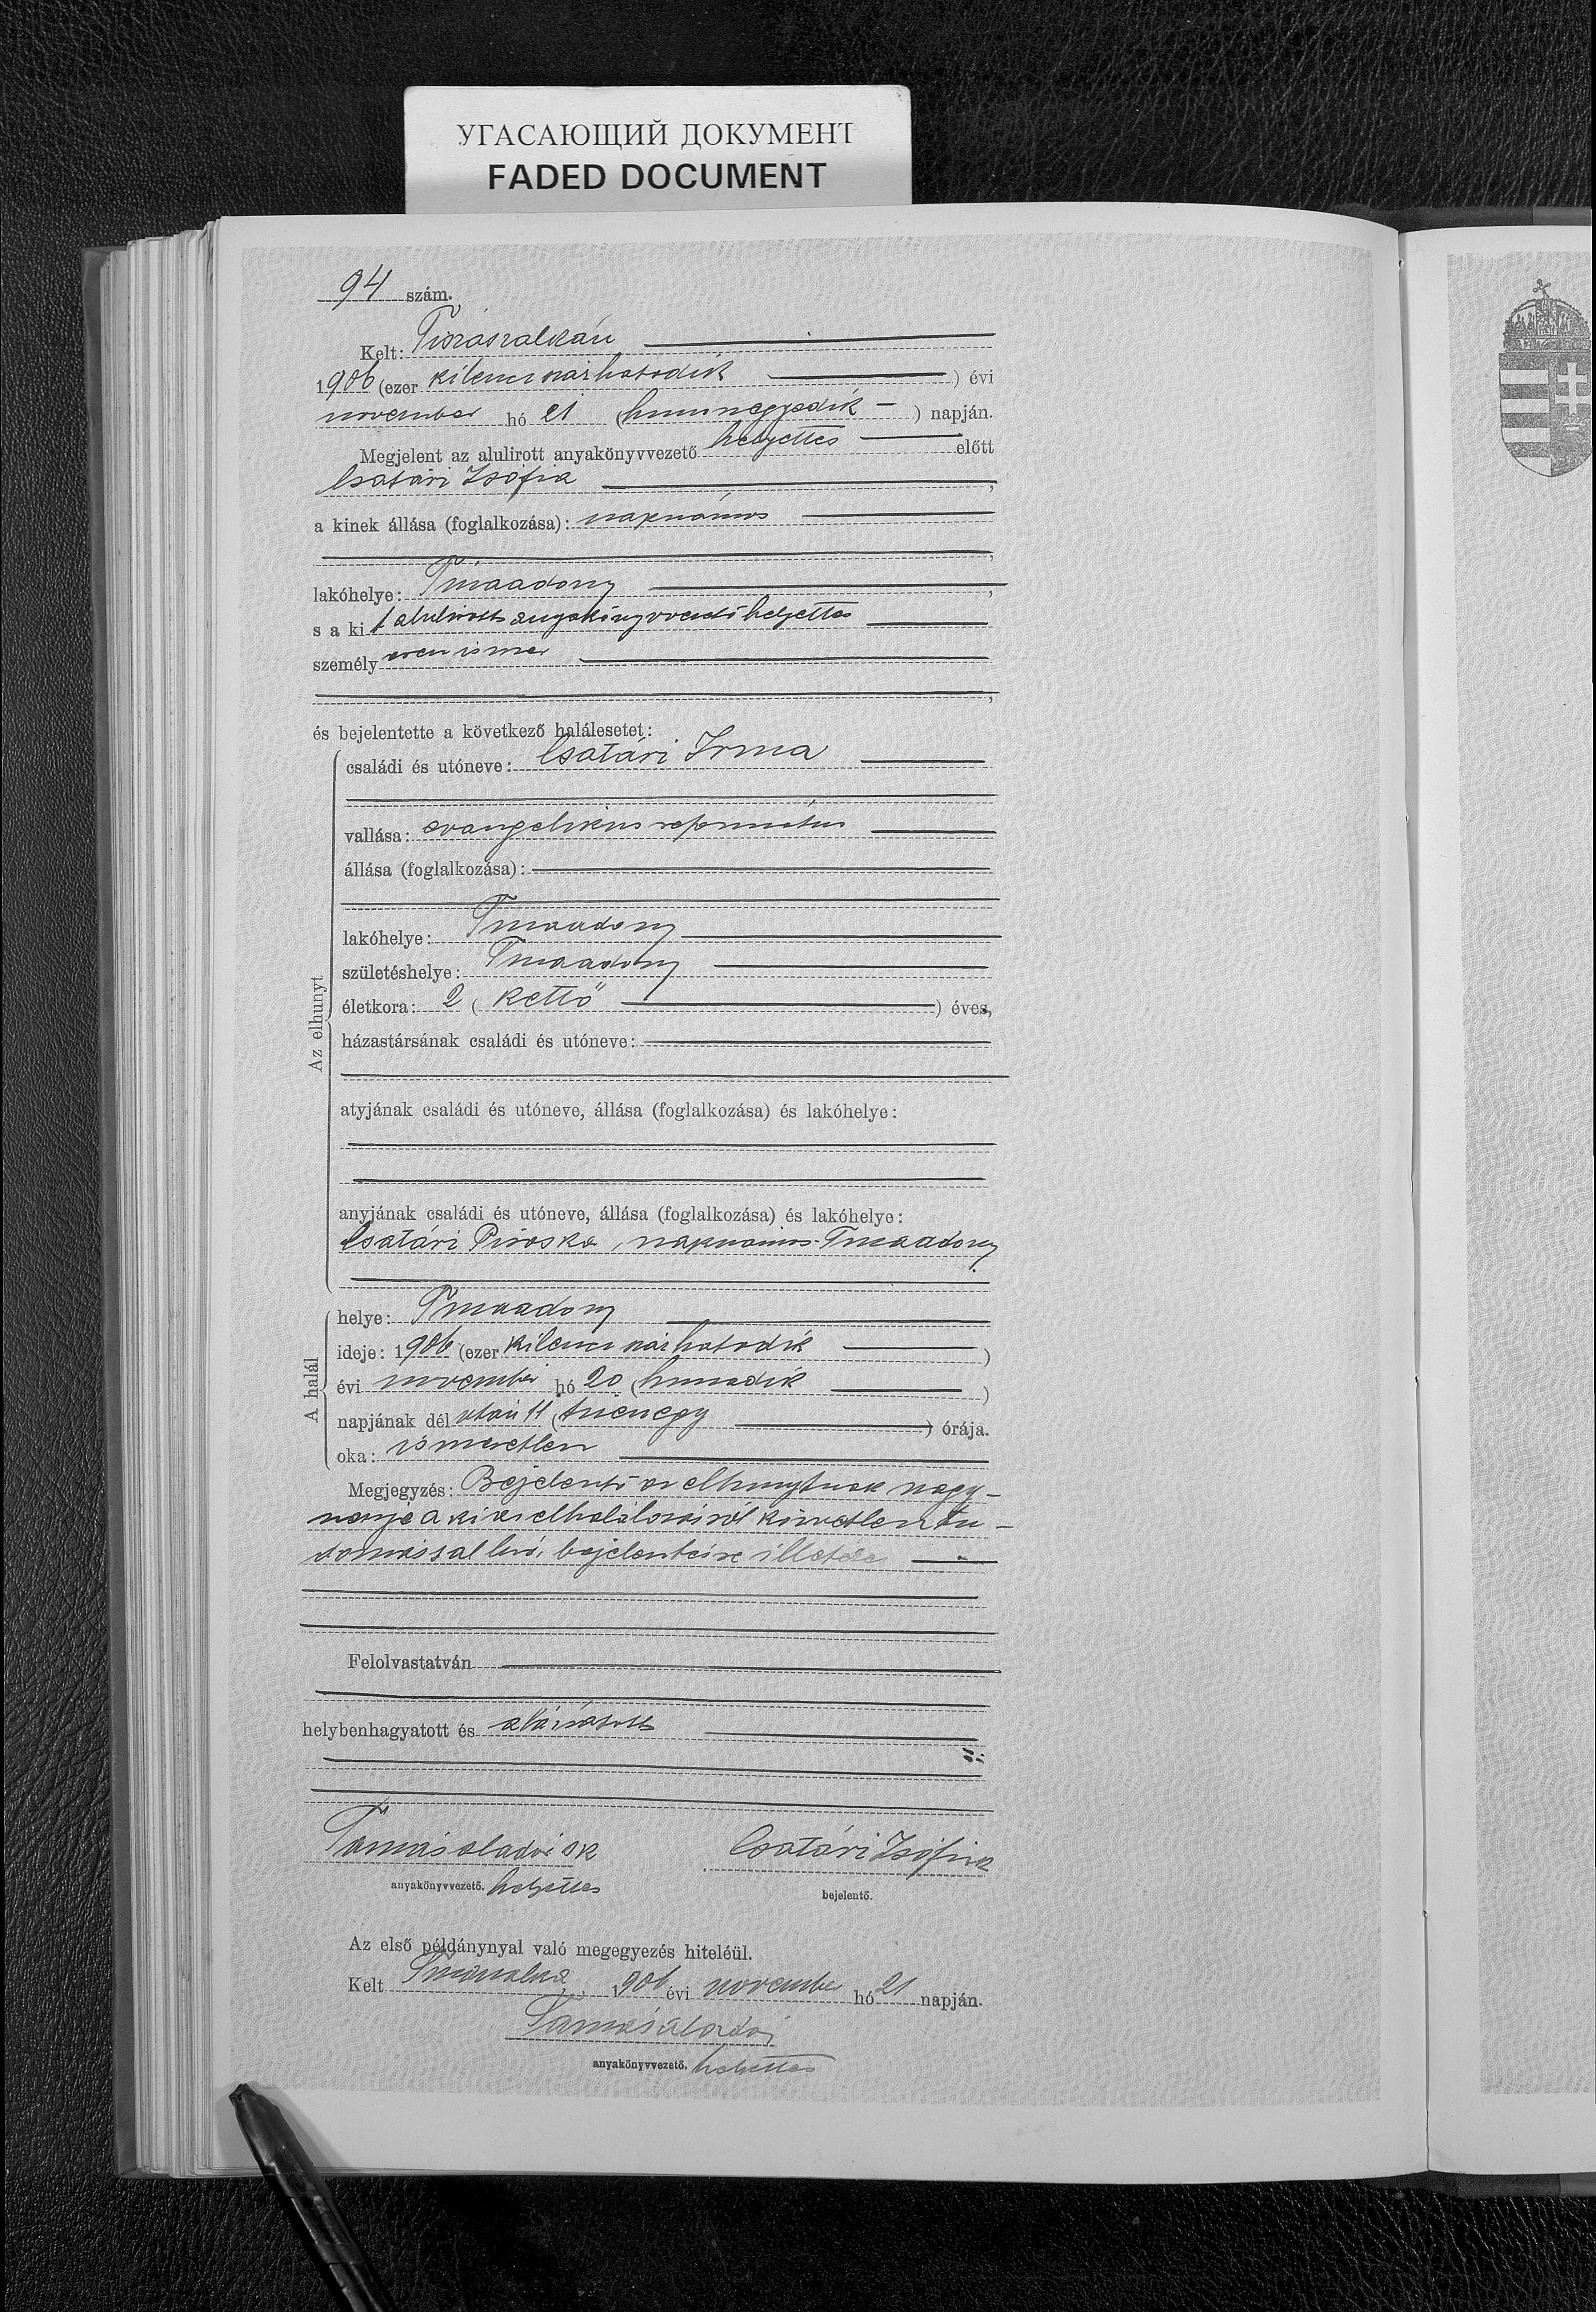 УГАСАЮЩИЙ ДОКУМЕНТ
FADED DOCUMENT
94 szám.
Kelt: Tiszaszalkán
1906 (ezer kilencszázhatodik ) évi
november hó 21 (huszonegyedik ) napján.
Megjelent az alulirott anyakönyvvezető helyettes előtt
Csatári Zsófia ,
a kinek állása (foglalkozása): napszámos
,
lakóhelye: Tiszaadony ,
s a ki t alulirott anyakönyvvezető helyettes
személy esen ismer
,
és bejelentette a következő halálesetet:
Az elhunyt
családi és utóneve: Csatári Irma
vallása: evangelikus református
állása (foglalkozása):
lakóhelye: Tiszaadony
születéshelye: Tiszaadony
életkora: 2 ( kettő ) éves,
házastársának családi és utóneve:
atyjának családi és utóneve, állása (foglalkozása) és lakóhelye:
anyjának családi és utóneve, állása (foglalkozása) és lakóhelye:
Csatári Piroska, napszámos Tiszaadony
A halál
helye: Tiszaadony
ideje: 1906 (ezer kilencszázhatodik )
évi november hó 20 (huszadik )
napjának dél után 11 (tizenegy ) órája.
oka: ismeretlen
Megjegyzés: Bejelentő az elhunytnak nagy-
nanyja a ki az elhalálozásról közvetlen tu-
domással bíró, bejelentésre illetéke
Felolvastatván
helybenhagyatott és aláiratott
Tamás Aladár sk Csatári Zsófia
anyakönyvvezető. helyettes bejelentő.
Az első példánynyal való megegyezés hiteléül.
Kelt Tiszaszalka, 1906 évi november hó 21 napján.
Tamás Aladár
anyakönyvvezető. helyettes